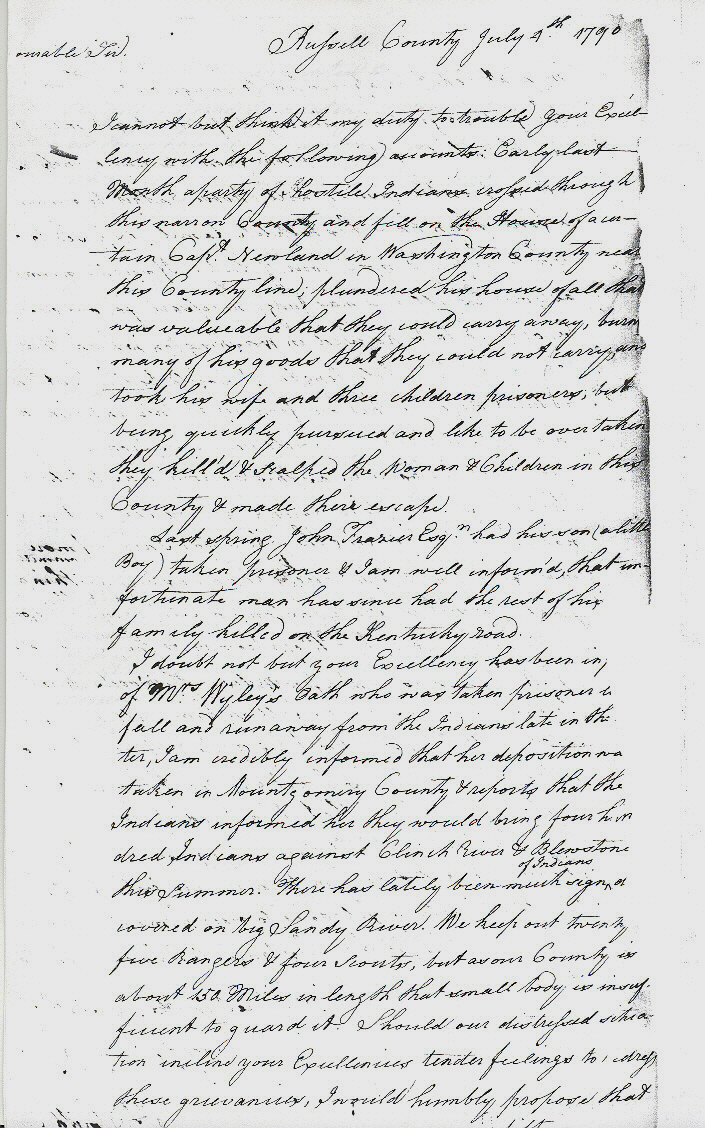 Russell County July 4th 1790
ourable Sir.
I cannot but think it my duty to trouble your Excel-
lency with the following accounts. Early last
Month a party of hostile Indians crossed through
this narrow County and fell on the House of a cer-
tain Capt. Newland in Washington County near
this County line, plundered his house of all that
was valueable that they could carry away, burn
many of his goods that they could not carry, and
took his wife and three children prisoners, but
being quickly pursued and like to be overtaken
they kill'd & scalped the Woman & Children in this
County & made their escape.
Last spring John Frazier Esqr. had his son (a little
Boy) taken prisoner & I am well inform'd, that un-
fortunate man has since had the rest of his
family killed on the Kentucky road.
I doubt not but your Excellency has been in
of Mrs Wyley's Oath who was taken prisoner
fall and runaway from the Indians late in the
ter, I am credibly informed that her deposition wa
taken in Mountgomery County & reports that the
Indians informed her they would bring four hun
dred Indians against Clinch River & Blewstone
this Summer. There has lately been much sign of Indians
covered on big Sandy River. We keep out twenty
five Rangers & four scouts, but as our County is
about 150 Miles in length that small body is insuf-
ficient to guard it. Should our distressed situa-
tion incline your Excellencies tender feelings to redress
these grievances, I would humbly propose that